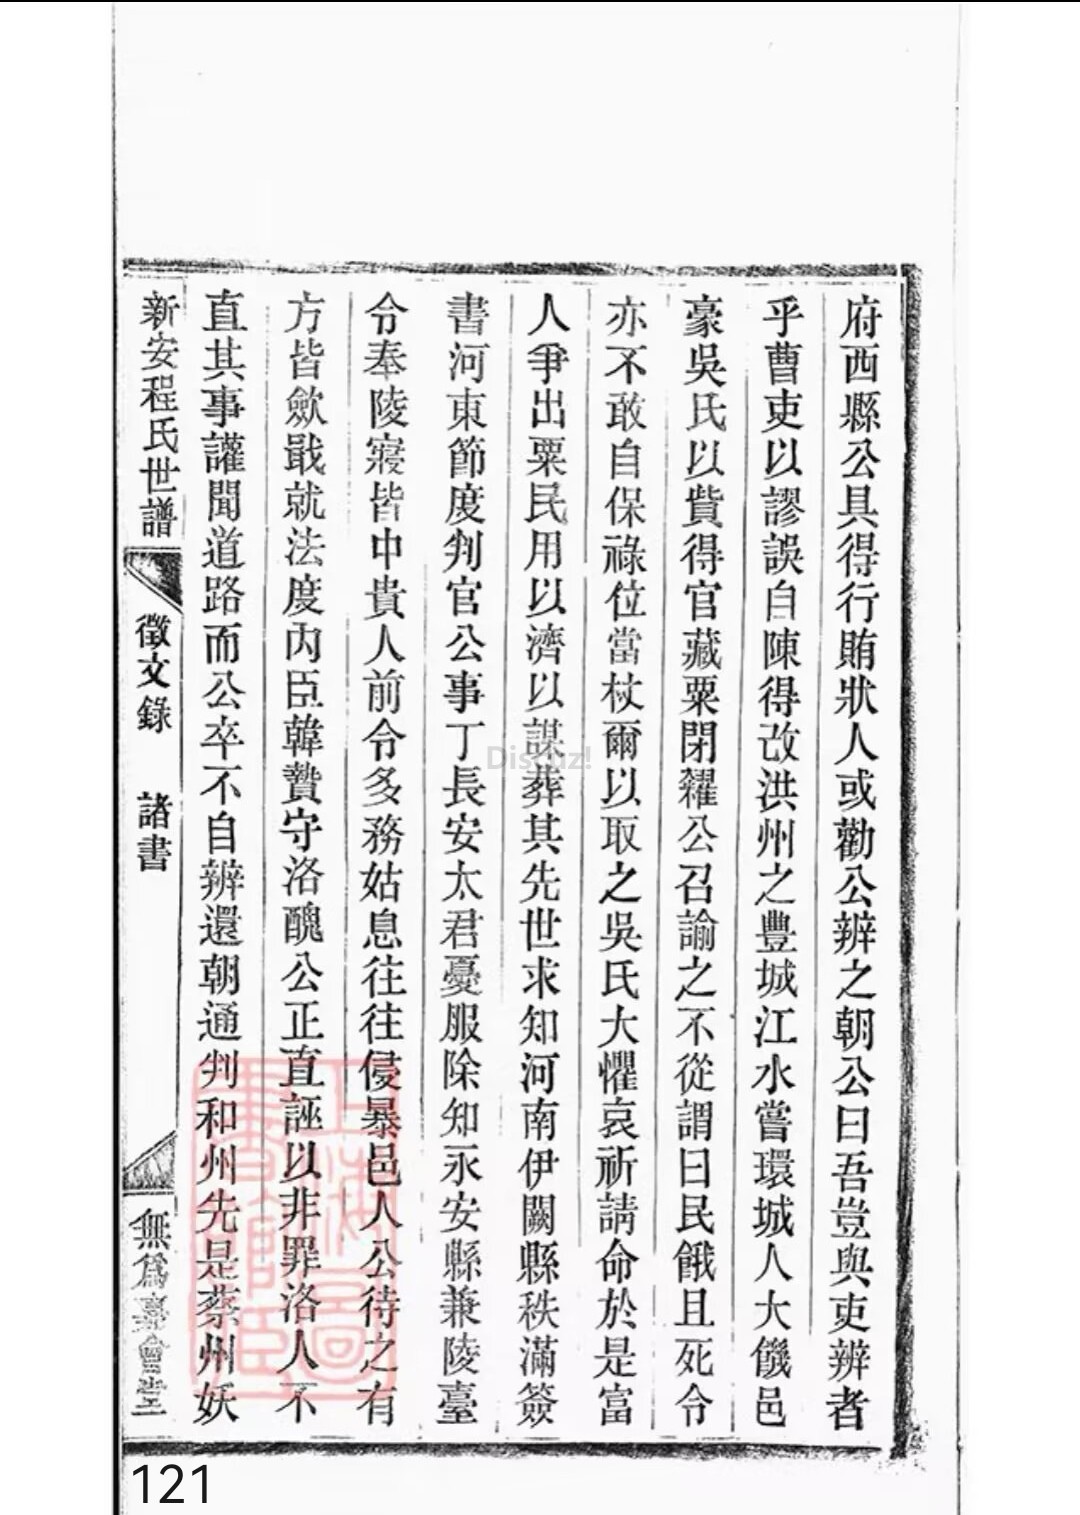 府西縣公具得行賄狀人或勸公辨之朝公曰吾豈與吏辨者
乎曹吏以謬誤自陳得改洪州之豐城江水嘗環城人大饑邑
豪吳氏以貲得官藏粟閉糴公召諭之不從謂曰民餓且死令
亦不敢自保祿位當杖爾以取之吳氏大懼哀祈請命於是富
人爭出粟民用以濟以謀葬其先世求知河南伊闕縣秩滿簽
書河東節度判官公事丁長安太君憂服除知永安縣兼陵臺
令奉陵寢皆中貴人前令多務姑息往往侵暴邑人公待之有
方皆歛戢就法度內臣韓贄守洛醜公正直誣以非罪洛人不
直其事讙聞道路而公卒不自辨還朝通判和州先是蔡州妖
新安程氏世譜
徵文錄 諸書
無為嘉會堂
上海圖書館藏
Discuz!
121